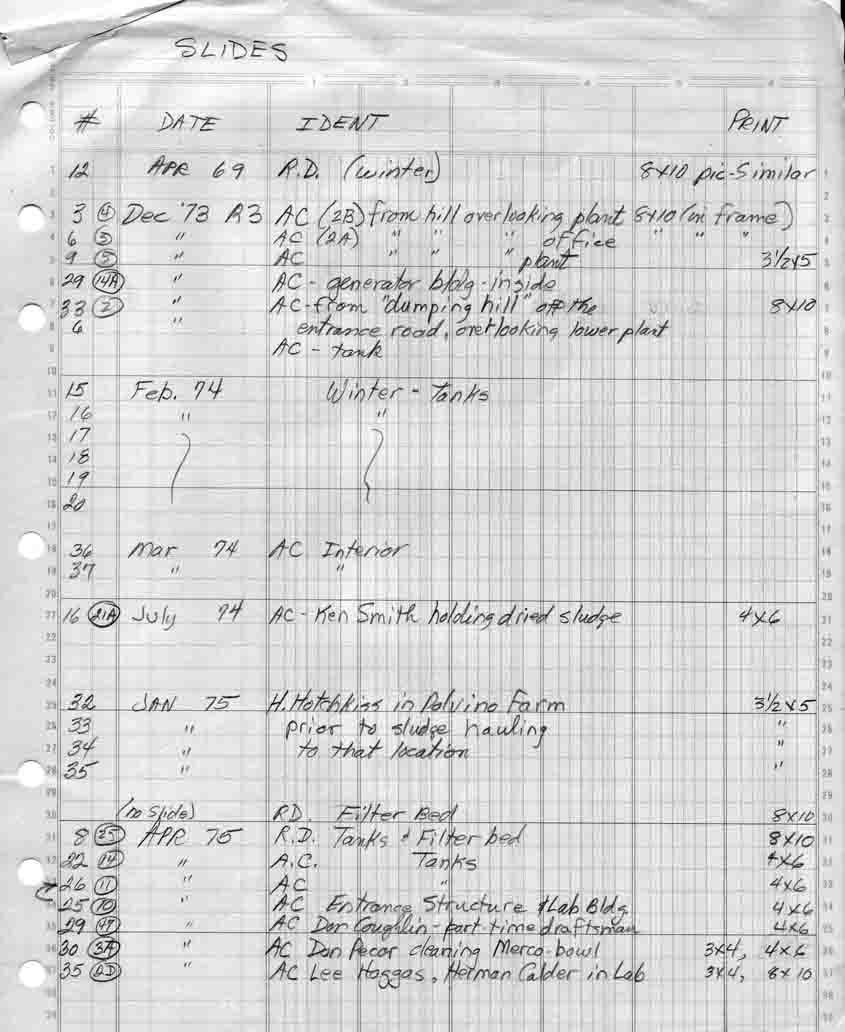 SLIDES
# DATE IDENT PRINT
12 APR 69 R.D. (winter) 8X10 pic-Similar
3 (4) Dec '73 R3 AC (2B) from hill overlooking plant 8X10 (in frame)
6 (3) " AC (2A) " " " office " " "
9 (5) " AC " " " plant 3½x5
29 (14A) " AC - generator bldg - inside
33 (2) " AC - from "dumping hill" off the 8x10
6 " entrance road, overlooking lower plant
AC - tank
15 Feb. 74 Winter - Tanks
16 " "
17
18
19
20
36 Mar 74 AC Interior
37 " "
16 (21A) July 74 AC - Ken Smith holding dried sludge 4x6
32 JAN 75 H. Hotchkiss in Polvino Farm 3½x5
33 " prior to sludge hauling "
34 " to that location "
35 " "
(no slide) RD. Filter Bed 8x10
8 (25) APR 75 R.D. Tanks & Filter bed 8x10
22 (14) " A.C. Tanks 4x6
26 (11) " AC " 4x6
25 (10) " AC Entrance Structure & Lab Bldg. 4x6
29 " AC Don Coughlin - part-time draftsman 4x6
30 (3A) " AC Don Pecor cleaning Merco-bowl 3x4, 4x6
35 " AC Lee Haggas, Herman Calder in Lab 3x4, 8x10